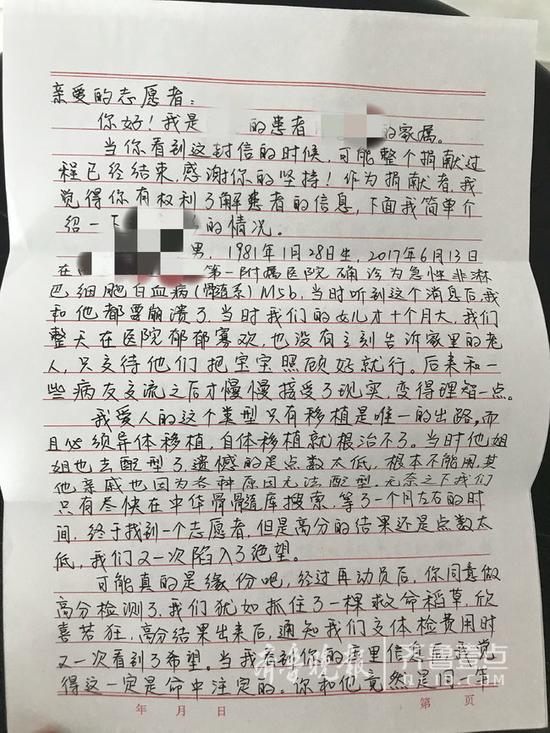 亲爱的志愿者:
你好!我是 的患者 的家属。
当你看到这封信的时候,可能整个捐献过
程已经结束,感谢你的坚持!作为捐献者,我
觉得你有权利了解患者的信息,下面我简单介
绍一下 的情况。
男,1981年1月28日生,2017年6月13日
在 第一附属医院确诊为急性非淋
巴细胞白血病(髓系)M5b,当时听到这个消息后,我
和他都要崩溃了,当时我们的女儿才十个月大,我们
整天在医院郁郁寡欢,也没有立刻告诉家里的老
人,只交待他们把宝宝照顾好就行。后来和一
些病友交流之后才慢慢接受了现实,变得理智一点。
我爱人的这个类型只有移植是唯一的出路,而
且必须异体移植,自体移植就根治不了。当时他姐
姐也去配型了,遗憾的是点数太低,根本不能用,其
他亲戚也因为各种原因无法配型,无奈之下我们
只有尽快在中华骨髓库搜索,等了一个月左右的时
间,终于找到一个志愿者,但是高分的结果还是点数太
低,我们又一次陷入了绝望。
可能真的是缘份吧,经过再动员后,你同意做
高分检测了,我们犹如抓住了一棵救命稻草,欣
喜若狂,高分结果出来后,通知我们交体检费用时
又一次看到了希望。当我看到你的 信息时,我觉
得这一定是命中注定的。你和他竟然是同一年
年 月 日 第 页
齐鲁晚报 齐鲁壹点